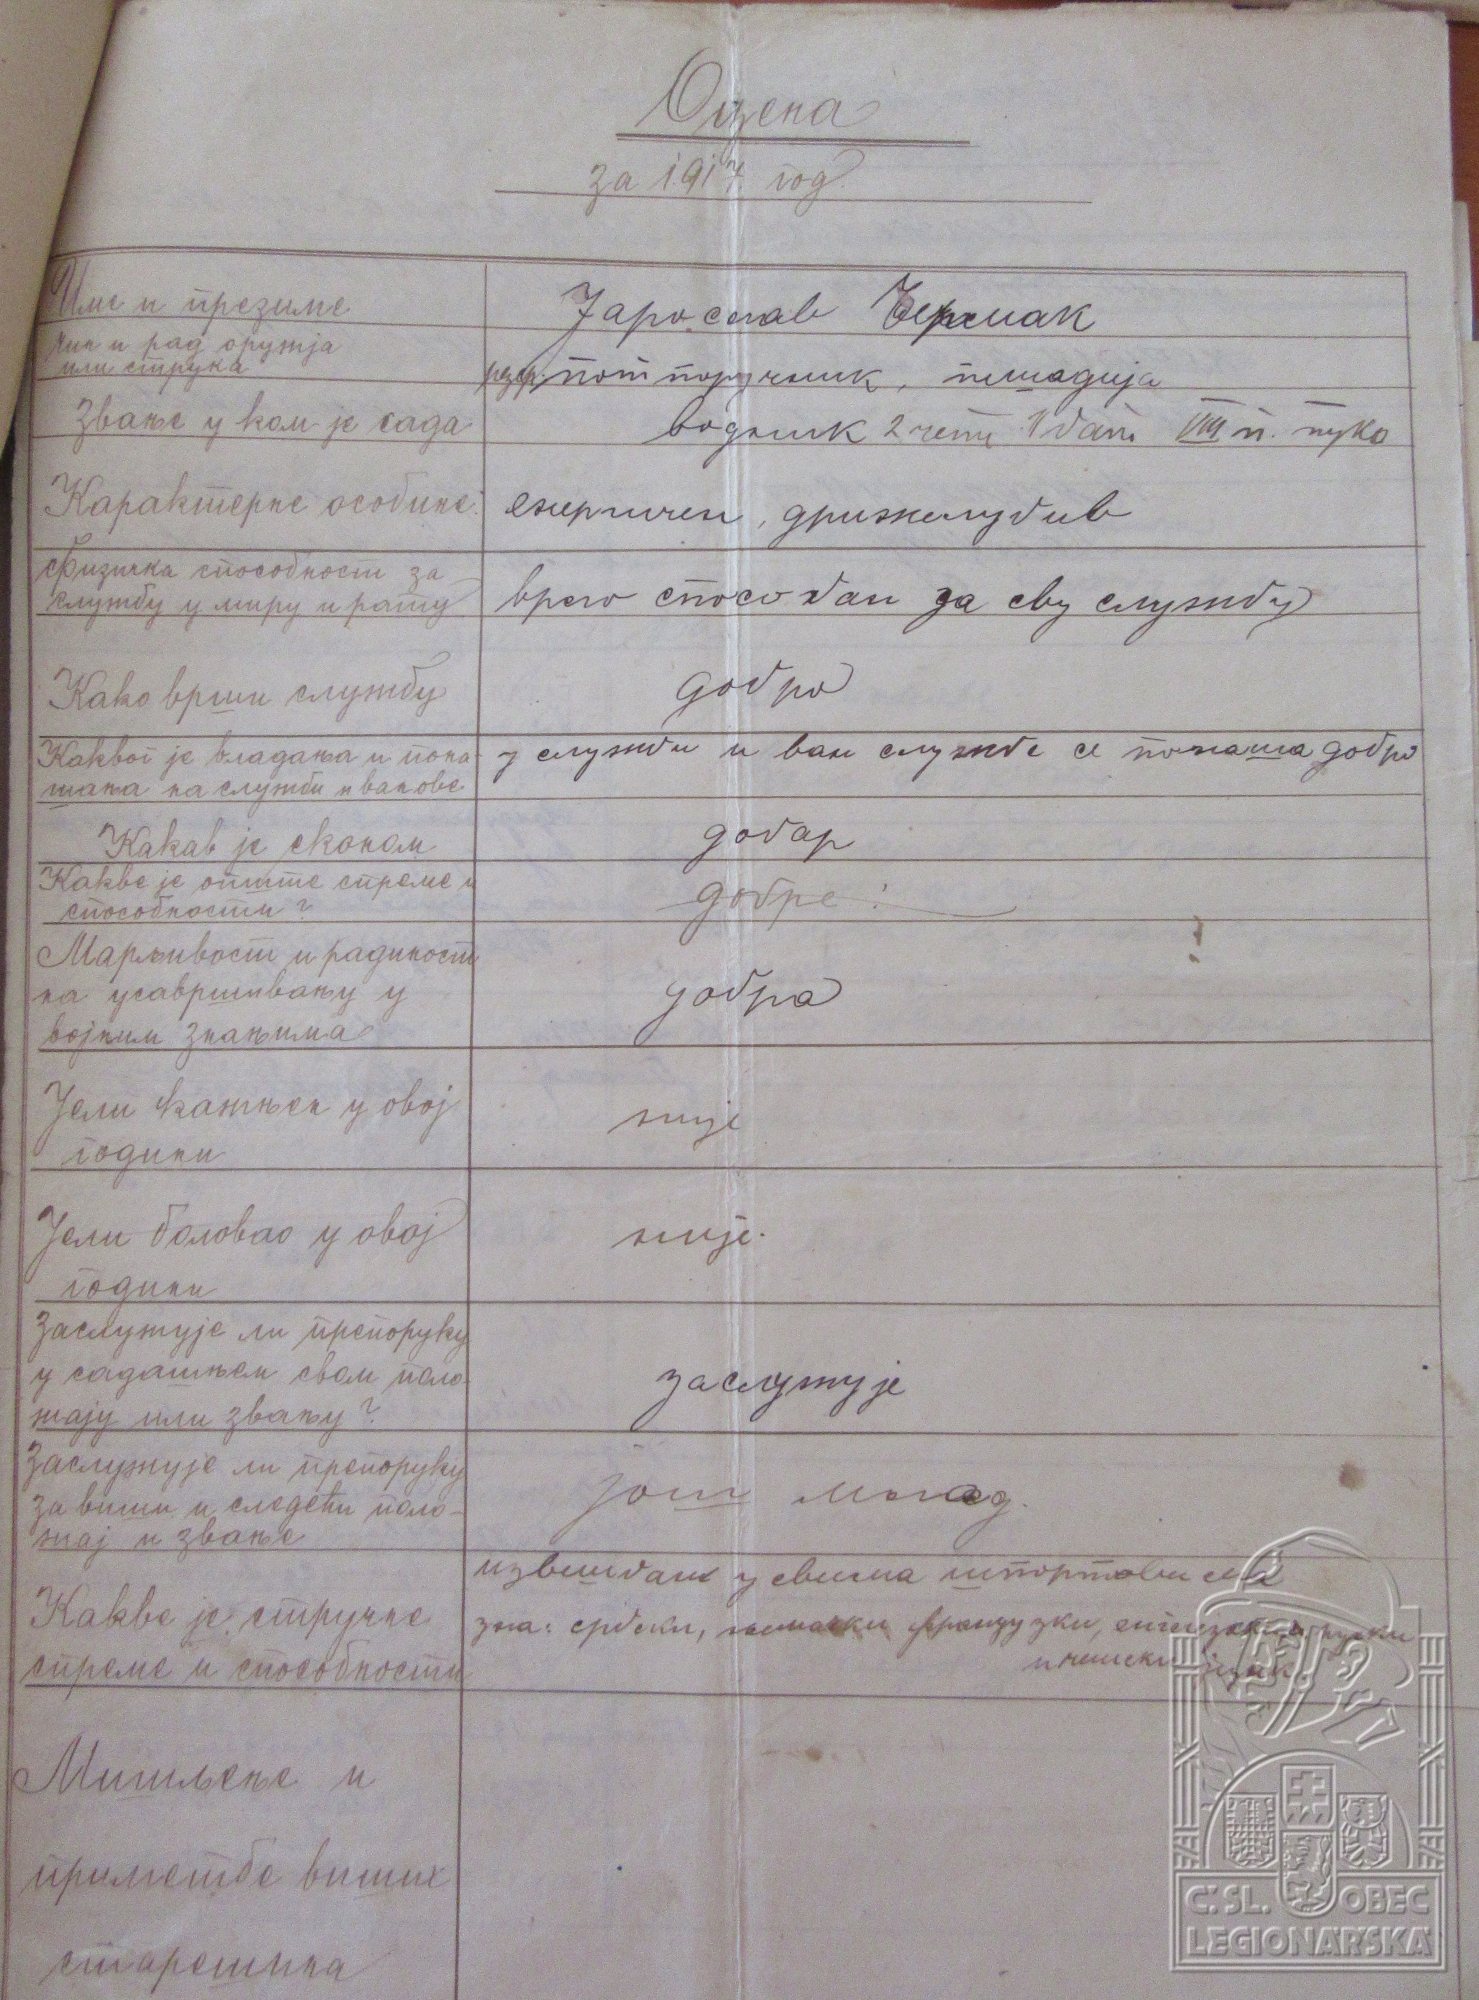 Оцена
за 1917 год.
Име и презиме
Јарослав Чермак
чин и рад оружја
или струка
резер. потпоручник, пешадија
Звање у ком је сада
водник 2 чете 1 бат. VIII п. пука
Карактерне особине:
енергичен, дружељубив
Физичка способност за
службу у миру и рату
врло способан за сву службу
Како врши службу
добро
Каквог је владања и пона-
шања на служби и ван ове
у служби и ван службе се понаша добро
Какав је економ
добар
Какве је опште спреме и
способности?
добре.
Марљивост и радиност
на усавршивању у
војним знањима
добра
Јели кажњен у овој
години
није
Јели боловао у овој
години
није.
Заслужује ли препоруку
у садашњем свом поло-
жају или звању?
заслужује
Заслужује ли препоруку
за виши и следећи поло-
жај и звање
још млад.
Какве је стручне
спреме и способности
извежбан у свима шпортовима
зна: србски, немачки французки, енглезски, руски
и чешски језик.
Мишљење и
приметбе виших
старешина
Č.SL. OBEC
LEGIONÁŘSKÁ